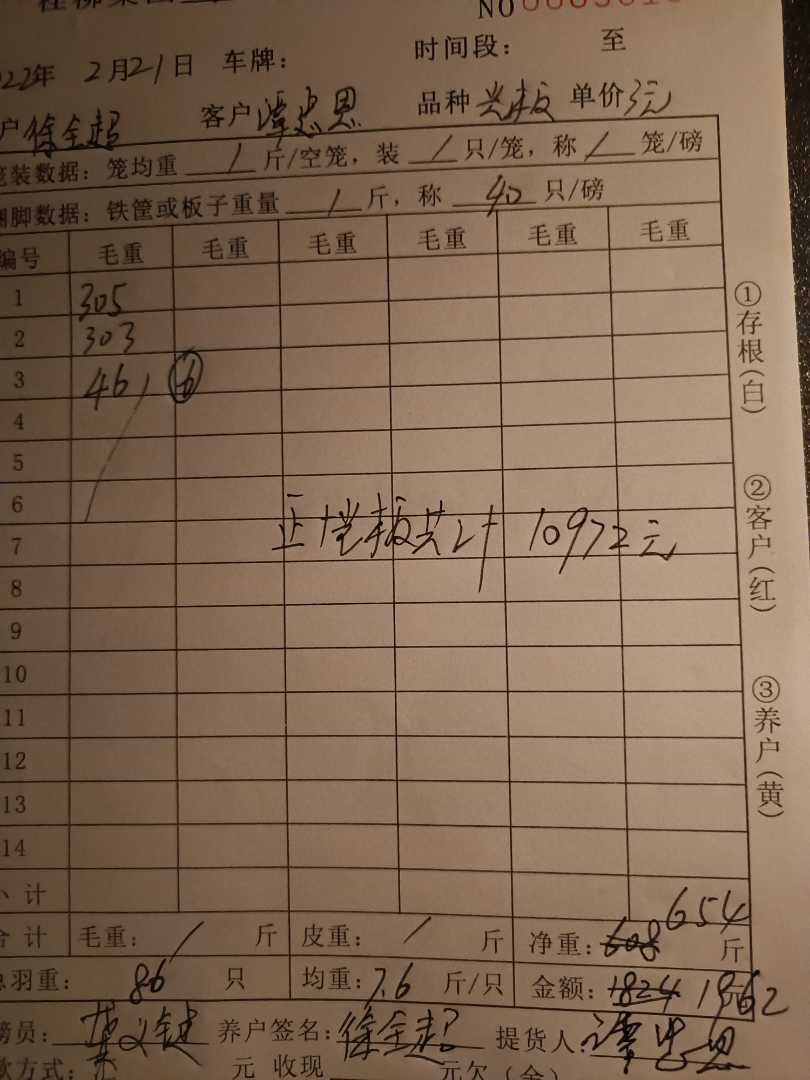 NO
022年 2月21日 车牌： 时间段： 至
户 徐全超 客户 谭忠恩 品种 板 单价 3元
装数据：笼均重 / 斤/空笼，装 / 只/笼，称 / 笼/磅
脚数据：铁筐或板子重量 / 斤，称 40 只/磅
编号 毛重 毛重 毛重 毛重 毛重 毛重
1 305
2 303
3 46 6
4
5
6
7
8
9
10
11
12
13
14
正 板共计 10972元
小计
合计 毛重： / 斤 皮重： / 斤 净重：608 654 斤
总羽重： 86 只 均重：7.6 斤/只 金额：1824 1962
磅员： 养户签名：徐全超 提货人：谭忠恩
款方式： 元 收现 元欠（余）
①存根（白）
②客户（红）
③养户（黄）